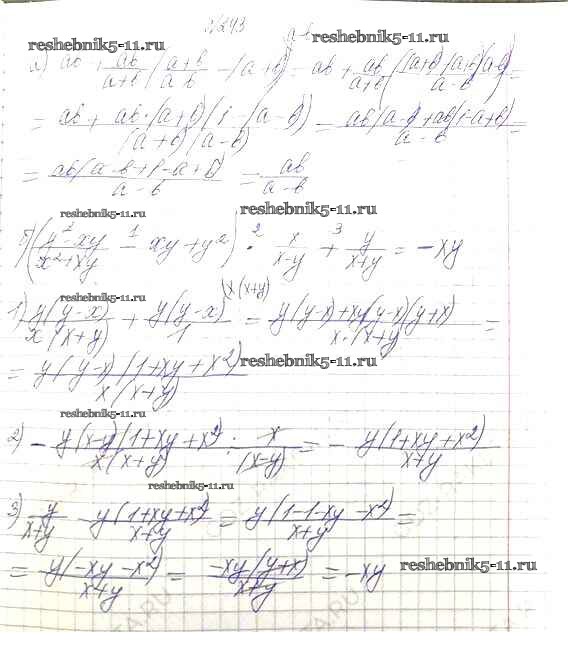 №243
reshebnik5-11.ru
а) ab + ab/(a+b) (a+b)/(a-b) - (a+b)) = ab + ab/(a+b) ((a+b) - (a+b)(a-b))/(a-b) =
= ab + ab·(a+b)(1-(a-b))/((a+b)(a-b)) = (ab(a-b)+ab(1-a+b))/(a-b) =
= ab(a-b+1-a+b)/(a-b) = ab/(a-b)
reshebnik5-11.ru
reshebnik5-11.ru
б) ((y²-xy)/(x²+xy) - xy+y²) · x/(x-y) + y/(x+y) = -xy
reshebnik5-11.ru
1) y(y-x)/(x(x+y)) + y(y-x)/1 (x(x+y) = (y(y-x)+xy(y-x)(y+x))/(x·(x+y)) =
= y(y-x)(1+xy+x²)/(x(x+y))
reshebnik5-11.ru
reshebnik5-11.ru
2) - y(x-y)(1+xy+x²)/(x(x+y)) · x/(x-y) = - y(1+xy+x²)/(x+y)
reshebnik5-11.ru
3) y/(x+y) - y(1+xy+x²)/(x+y) = y(1-1-xy-x²)/(x+y) =
= y(-xy-x²)/(x+y) = -xy(y+x)/(x+y) = -xy
reshebnik5-11.ru